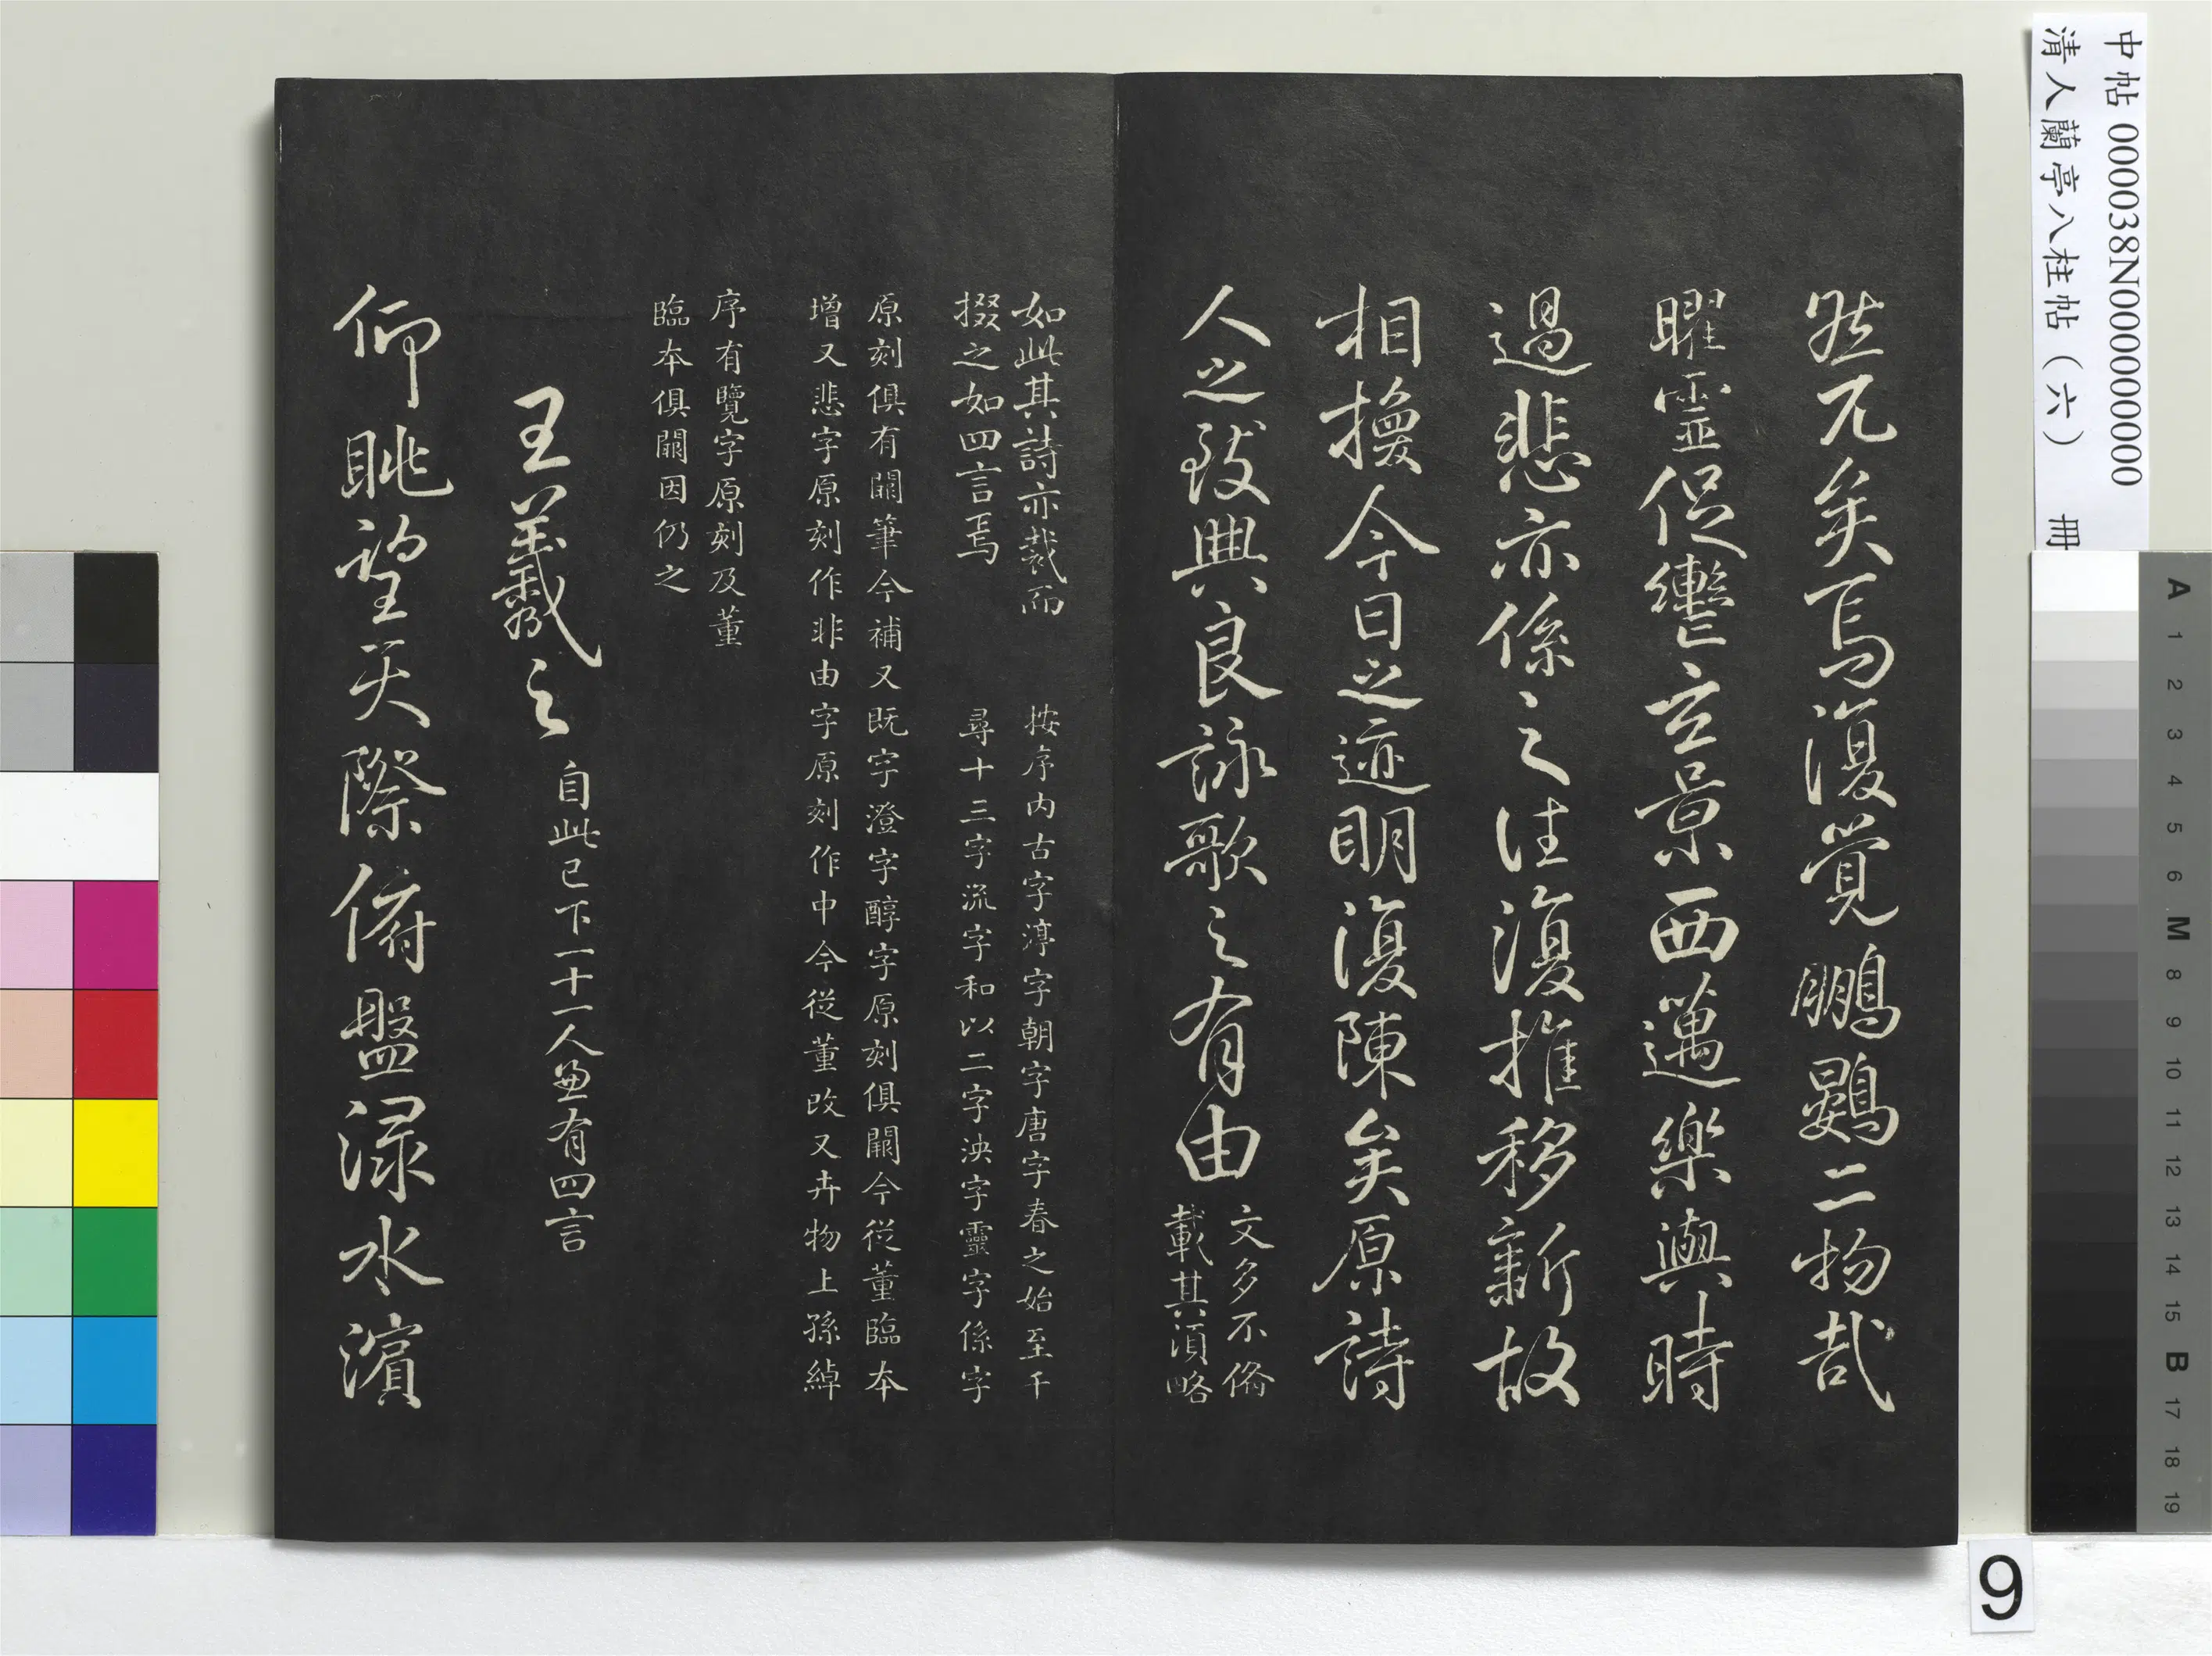 然兀矣焉復覺鵬鷃二物哉
曜靈促轡玄景西邁樂與時
過悲亦係之往復推移新故
相換今日之迹明復陳矣原詩
人之致興良詠歌之有由
文多不俻
載其湏略
如此其詩亦裁而
掇之如四言焉
按序内古字淳字朝字唐字春之始至千
尋十三字流字和以二字泱字靈字係字
原刻俱有闕筆今補又既字澄字醇字原刻俱闕今從董臨本
增又悲字原刻作非由字原刻作中今從董改又卉物上孫綽
序有覽字原刻及董
臨本俱闕因仍之
王羲之
自此已下一十一人並有四言
仰眺望天際俯盤渌水濱
中帖 000038N000000000
清人蘭亭八柱帖(六) 冊
A 1 2 3 4 5 6 M 8 9 10 11 12 13 14 15 B 17 18 19
9